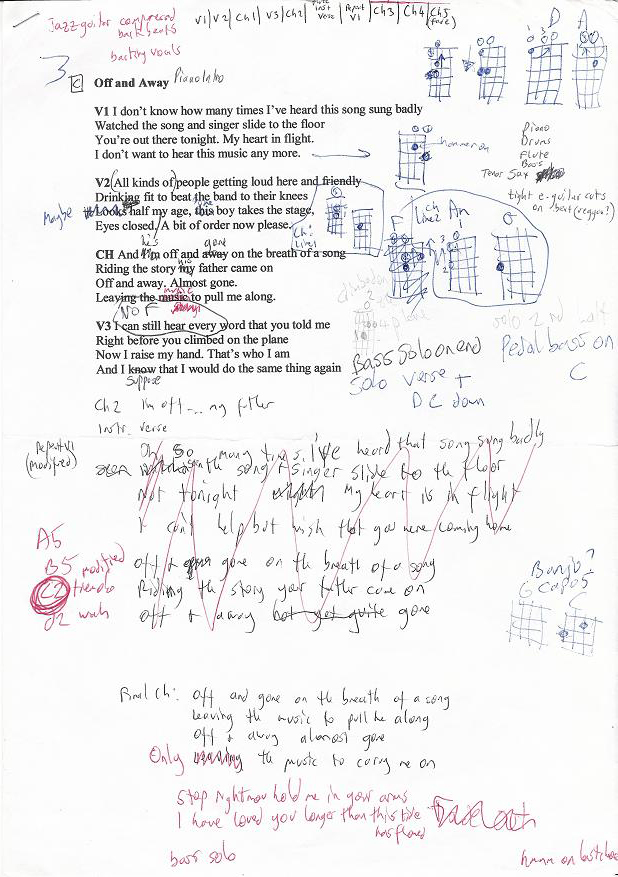 Jazz guitar compressed
back beats
backing vocals
V1 V2 Ch1 V3 Ch2 inst verse Repeat V1 Ch3 Ch4 Ch5
3
C
Off and Away Piano Intro
D A
V1 I don't know how many times I've heard this song sung badly
Watched the song and singer slide to the floor
You're out there tonight. My heart in flight.
I don't want to hear this music any more.
hammer on
Piano
Drums
Flute
Bass
Tenor Sax
tight e-guitar cuts
on beat (reggae?)
V2 (All kinds of) people getting loud here and friendly
Drinking fit to beat the band to their knees
Maybe Looks half my age, this boy takes the stage,
Eyes closed. A bit of order now please.
Ch:
line 1
F ch line 2 Am G
his gone
CH And I'm off and away on the breath of a song
Riding the story my father came on
Off and away. Almost gone.
Leaving the music to pull me along.
No F
V3 I can still hear every word that you told me
Right before you climbed on the plane
Now I raise my hand. That's who I am
And I know that I would do the same thing again
Suppose
solo 2nd half
Bass Solo on end
Solo verse +
DC down
Pedal bass on
C
Ch 2 I'm off .... my father
Instr. verse
Repeat V1
(modified)
Oh so many times I've heard that song sung badly
Seen the song + singer slide to the floor
Not tonight My heart is in flight
I can't help but wish that you were coming home
A5
B5 modified
C2 tremolo
d2 wah
off + gone on the breath of a song
Riding the story your father came on
off + away but not quite gone
Banjo?
G Capo 5
C
Final Ch: Off and gone on the breath of a song
leaving the music to pull me along
off + away almost gone
Only the music to carry me on
Stop right now hold me in your arms
I have loved you longer than this tide
has flowed
Fade out
bass solo
hmmm on